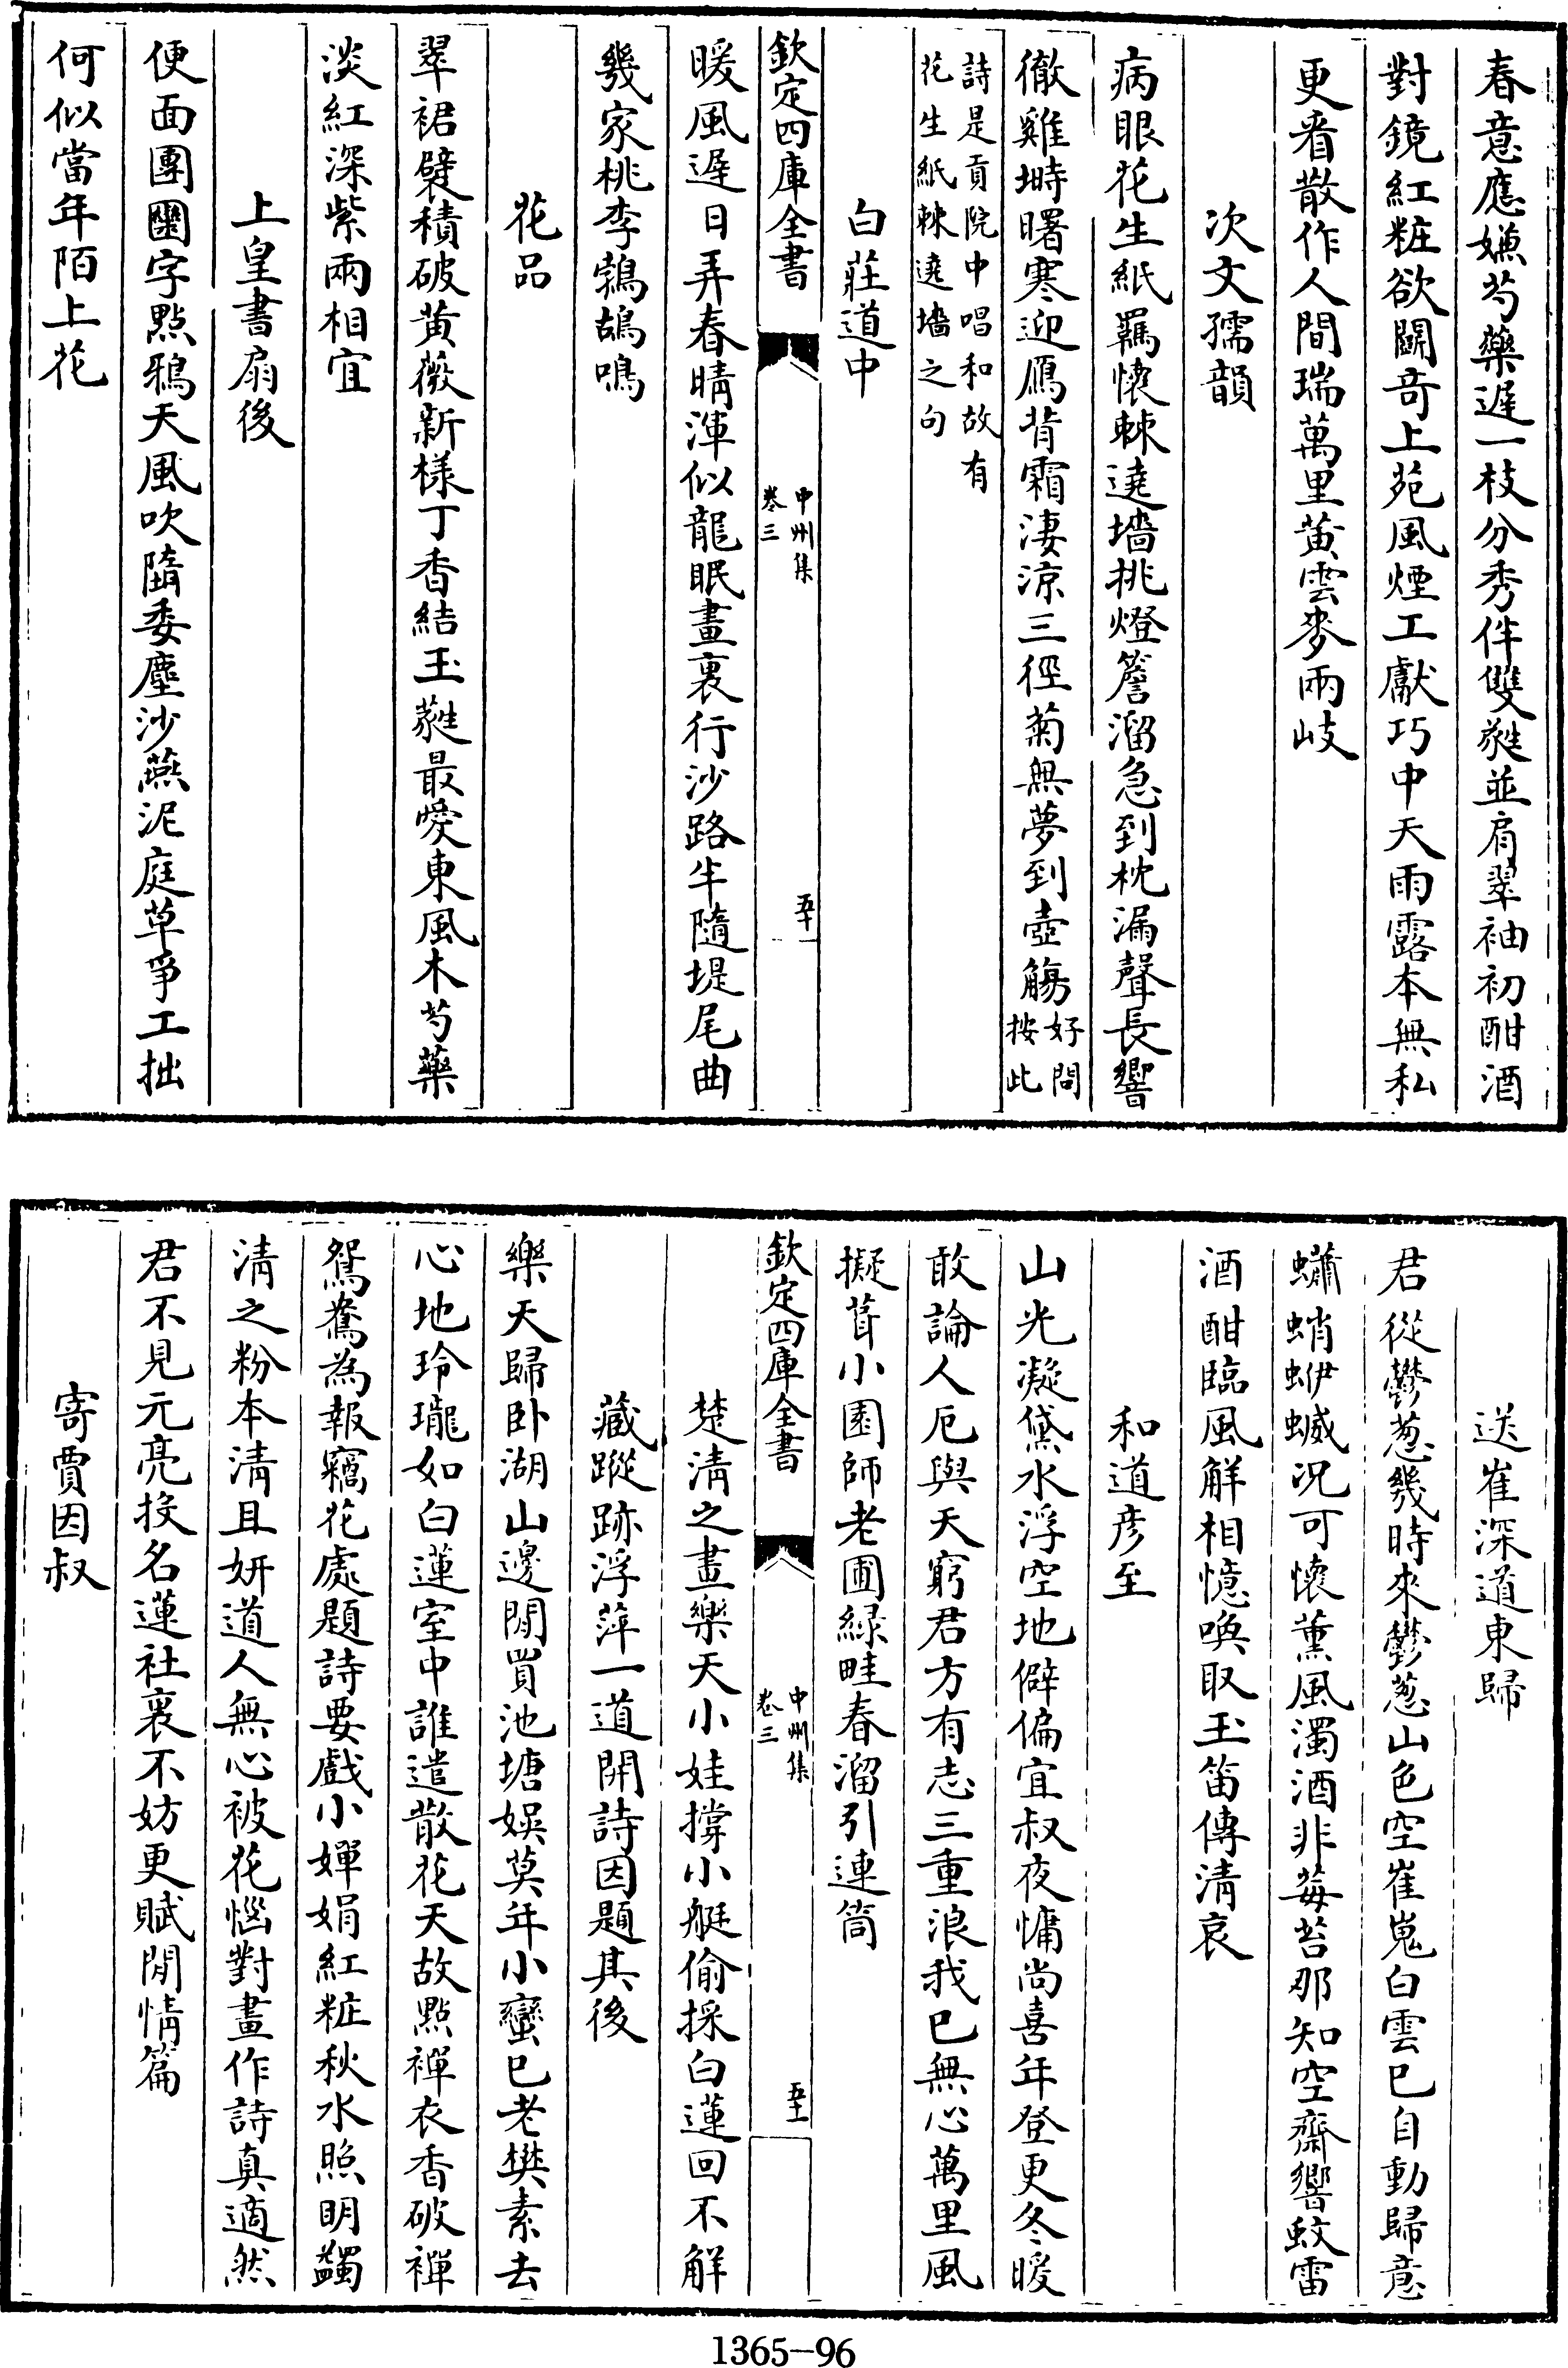 春意應嫌芍藥遲一枝分秀伴雙蕤並肩翠袖初酣酒
對鏡紅粧欲鬭奇上苑風煙工獻巧中天雨露本無私
更看散作人間瑞萬里黃雲麥兩岐
次文孺韻
病眼花生紙羈懷棘遶墻挑燈簷溜急到枕漏聲長響
徹雞塒曙寒迎鴈背霜淒涼三徑菊無夢到壺觴好問按此
詩是貢院中唱和故有
花生紙棘遶墻之句
白莊道中
欽定四庫全書
中州集
卷三
五十一
暖風遲日弄春晴渾似龍眠畫裏行沙路半隨堤尾曲
幾家桃李鵓鴣鳴
花品
翠裙襞積破黃薇新様丁香結玉蕤最愛東風木芍藥
淡紅深紫兩相宜
上皇書扇後
便面團圞字點鴉天風吹隨委塵沙燕泥庭草爭工拙
何似當年陌上花
送崔深道東歸
君從鬱葱幾時來鬱葱山色空崔嵬白雲已自動歸意
蠨蛸蛜蝛况可懷薰風濁酒非莓苔那知空齋響蚊雷
酒酣臨風解相憶喚取玉笛傳清哀
和道彦至
山光凝黛水浮空地僻偏宜叔夜慵尚喜年登更冬暖
敢論人厄與天窮君方有志三重浪我已無心萬里風
擬葺小園師老圃緑畦春溜引連筒
欽定四庫全書
中州集
卷三
五十一
楚清之畫樂天小娃撐小艇偷採白蓮回不解
藏蹤跡浮萍一道開詩因題其後
樂天歸卧湖山邊閒買池塘娱莫年小蠻已老樊素去
心地玲瓏如白蓮室中誰遣散花天故點禪衣香破禪
鴛鴦為報竊花處題詩要戲小嬋娟紅粧秋水照明蠲
清之粉本清且妍道人無心被花惱對畫作詩真適然
君不見元亮投名蓮社裏不妨更賦閒情篇
寄賈因叔
1365-96